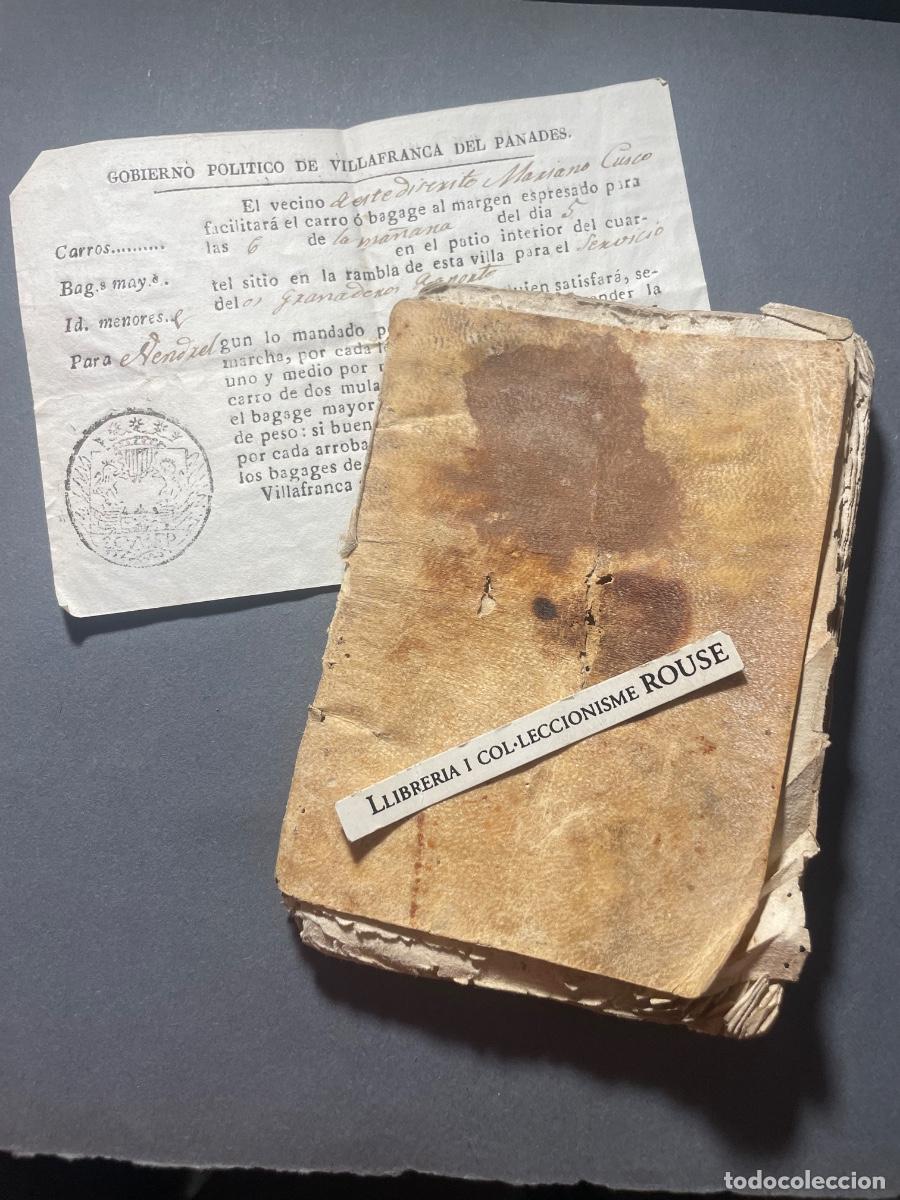 GOBIERNO POLITICO DE VILLAFRANCA DEL PANADES.
El vecino de este distrito Mariano Cusco
facilitará el carro ó bagage al margen espresado para
las 6 de la mañana del dia 5
en el patio interior del cuar-
tel sitio en la rambla de esta villa para el Servicio
de los Granaderos quien satisfará, se-
gun lo mandado
marcha, por cada
uno y medio por
carro de dos mula
el bagage mayor
de peso: si buen
por cada arroba
los bagages de
Villafranca
Carros..........
Bag.s may.s.
Id. menores.
Para Vendrel
LLIBRERIA I COL·LECCIONISME ROUSE
todocoleccion